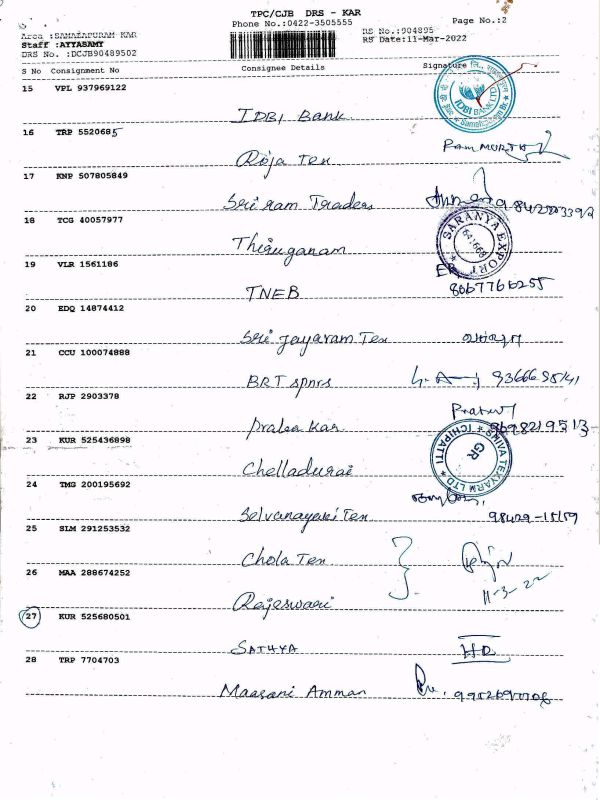 TPC/CJB DRS - KAR
Phone No.:0422-3505555 Page No.:2
Area :SAMALAPURAM-KAR RS No.:904895
Staff :AYYASAMY RS Date:11-Mar-2022
DRS No. :DCJB90489502
S No Consignment No Consignee Details Signature
15 VPL 937969122
IDBI Bank
16 TRP 5520685
Roja Tex
17 KNP 507805849
Sri ram Traders
18 TCG 40057977
SARANYA EXPORT
641668
Thiruganam
19 VLR 1561186
TNEB
20 EDQ 14874412
Sri jayaram Tex
21 CCU 100074888
BRT spnrs
22 RJP 2903378
Praba kar
23 KUR 525436898
SHIVA TEXYARM LTD * ICHIPATTI *
GR
Chelladurai
24 TMG 200195692
Selvanayaki Tex 98429-15159
25 SLM 291253532
Chola Tex
26 MAA 288674252
11-3-22
Rajeswari
27 KUR 525680501
SATHYA HD
28 TRP 7704703
Maasani Amman